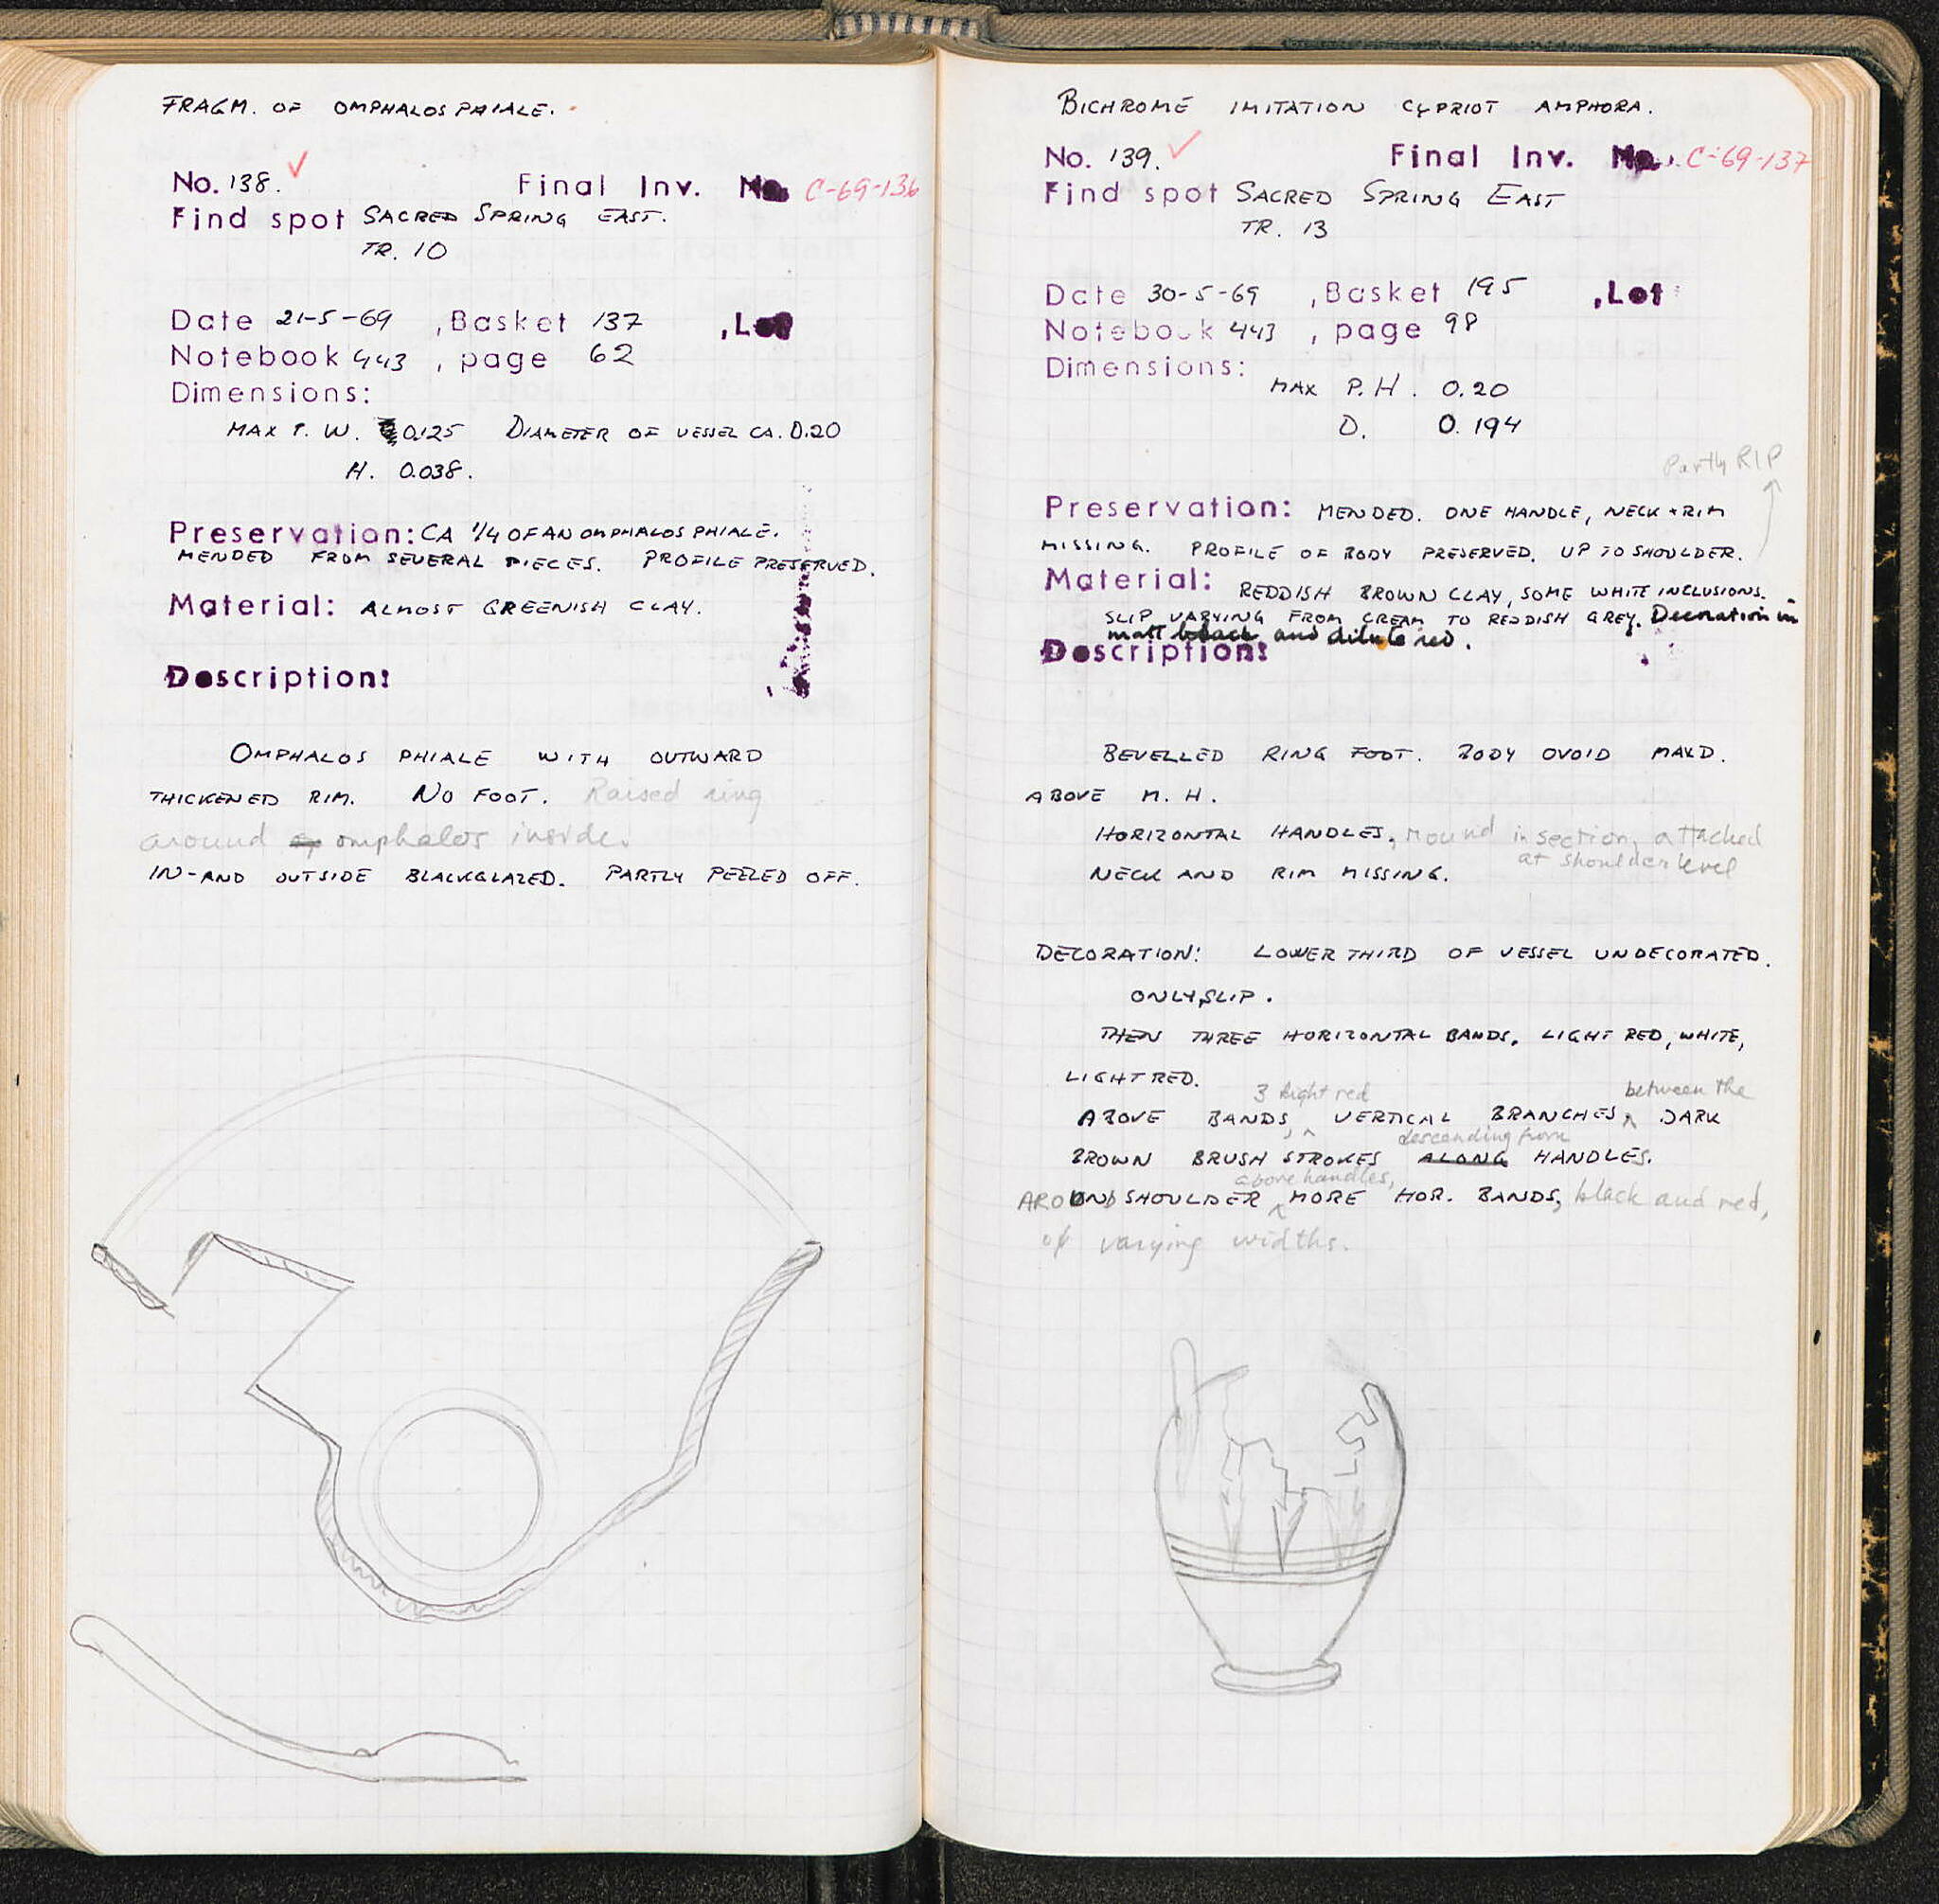 FRAGM. OF OMPHALOS PHIALE.
No. 138. ✓ Final Inv. No. C-69-136
Find spot SACRED SPRING EAST.
TR. 10
Date 21-5-69 , Basket 137 , Lot
Notebook 443 , page 62
Dimensions:
MAX P. W. 0.125 DIAMETER OF VESSEL CA. 0.20
H. 0.038.
Preservation: CA 1/4 OF AN OMPHALOS PHIALE.
MENDED FROM SEVERAL PIECES. PROFILE PRESERVED.
Material: ALMOST GREENISH CLAY.
Description:
OMPHALOS PHIALE WITH OUTWARD
THICKENED RIM. NO FOOT. Raised ring
around omphalos inside.
IN-AND OUTSIDE BLACKGLAZED. PARTLY PEELED OFF.
BICHROME IMITATION CYPRIOT AMPHORA.
No. 139. ✓ Final Inv. No. C-69-137
Find spot SACRED SPRING EAST
TR. 13
Date 30-5-69 , Basket 195 , Lot
Notebook 443 , page 98
Dimensions:
MAX P. H. 0.20
D. 0.194
Partly RIP
Preservation: MENDED. ONE HANDLE, NECK + RIM
MISSING. PROFILE OF BODY PRESERVED. UP TO SHOULDER.
Material: REDDISH BROWN CLAY, SOME WHITE INCLUSIONS.
SLIP VARYING FROM CREAM TO REDDISH GREY. Decoration in
matt black and dilute red.
Description:
BEVELLED RING FOOT. BODY OVOID MAX D.
ABOVE M. H.
HORIZONTAL HANDLES, round in section, attached
at shoulder level
NECK AND RIM MISSING.
DECORATION: LOWER THIRD OF VESSEL UNDECORATED.
ONLY SLIP.
THEN THREE HORIZONTAL BANDS. LIGHT RED, WHITE,
LIGHT RED.
3 light red between the
ABOVE BANDS, VERTICAL BRANCHES, DARK
descending from
BROWN BRUSH STROKES ALONG HANDLES.
above handles,
AROUND SHOULDER MORE HOR. BANDS, black and red,
of varying widths.